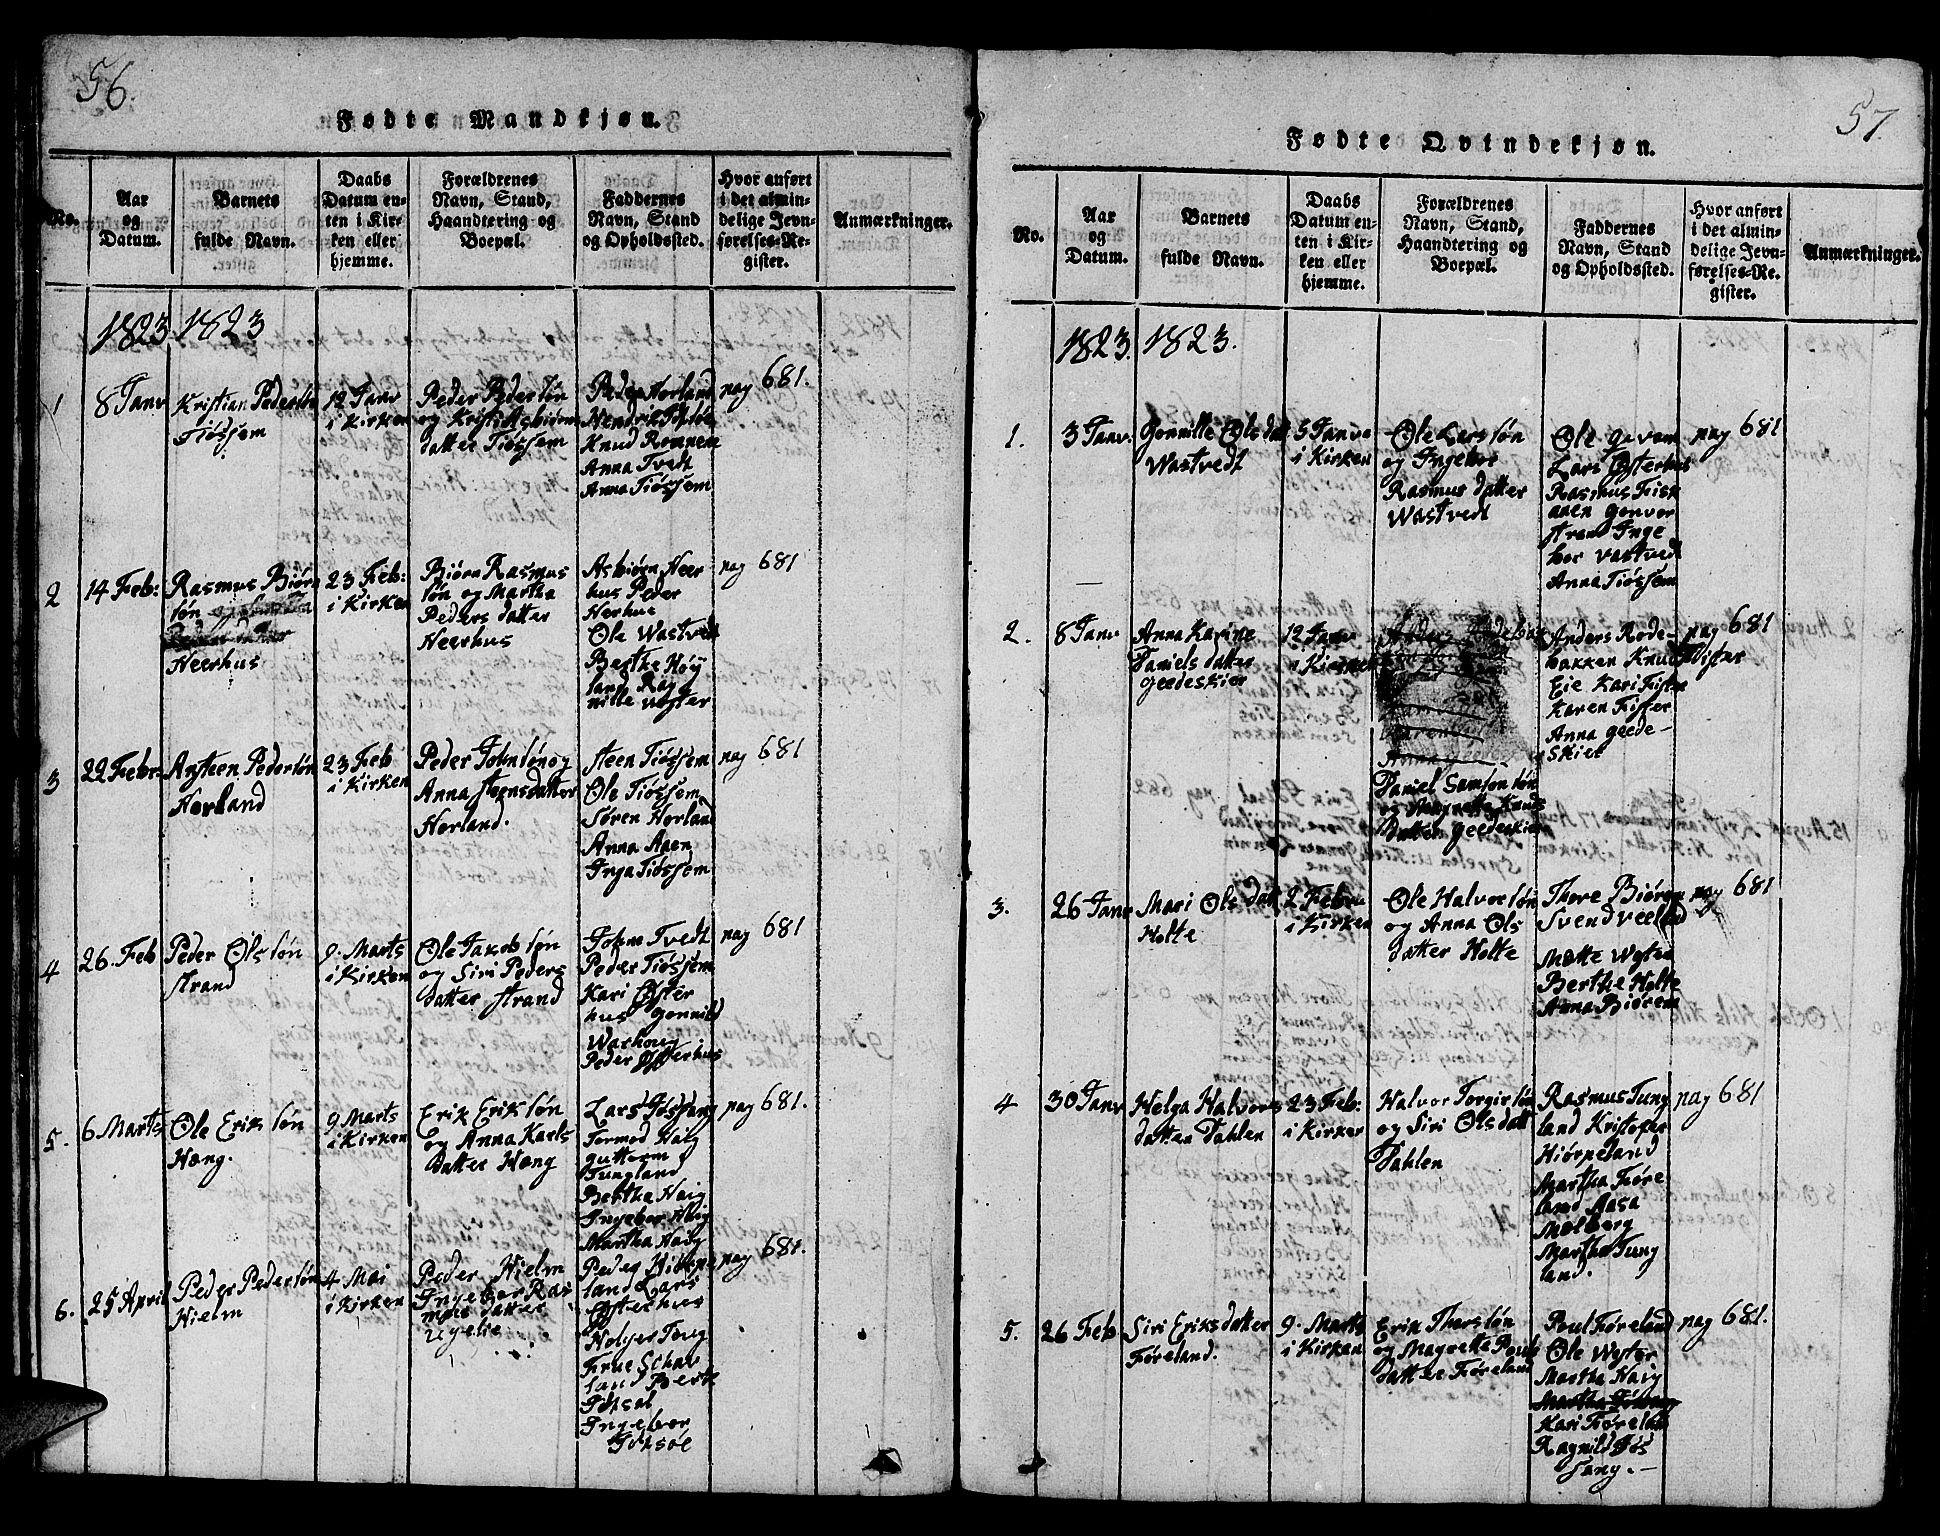 56.
Fødte Mandkjøn.
No.
Aar
og
Datum.
Barnets
fulde Navn.
Daabs
Datum en-
ten i Kir-
ken eller
hjemme.
Forældrenes
Navn, Stand,
Haandtering og
Boepæl.
Faddernes
Navn, Stand
og Opholdssted.
Hvor anført
i det almin-
delige Jevn-
førelses-Re-
gister.
Anmærkninger.
1823. 1823
1
8 Janv
Kristian Pedersøn
Tiøssem
12 Janv
i Kirken
Peder Pedersøn
og Kristi Asbiørns
datter Tiøssem
Peder Horland
Hendrik
Knud Romnem
Anna Tvedt
Anna Tiøssem
pag 681.
2
14 Feb:
Rasmus Biørn
søn
Heerhus
23 Feb:
i Kirken
Biørn Rasmus
søn og Martha
Peders datter
Heerhus
Asbiørn Heer
hus Peder
Herhus
Ole Wastvedt
Berthe Høÿ
land Rag
nille Wester
pag 681
3
22 Febr:
Ansteen Pedersøn
Horland
23 Feb
i Kirken
Peder Johnsøn og
Anna Steensdatter
Horland.
Steen Tiøssem
Ole Tiøssem
Søren Horland
Anna Aaen
Inga Tiøssem
pag 681
4
26. Feb
Peder Olssøn
Strand
9. Marts
i Kirken
Ole Jakobsøn
og Siri Peders
datter Strand
John Tvedt
Peder Tiøssem
Kari Øster
hus Gonnild
Peder Østerhus
pag 681
5.
6 Marts
Ole Eriksøn
Hæng.
9 Marts
i Kirken
Erik Eriksøn
og Anna Karls
datter Hæng
Lars Fossang
Tormod Haig
Guttorm
Tungland
Bertha Haig
Ingebor Haig
Martha Haig
pag 681.
6.
25 April
Peder Pedersøn
Hielm
4 Mai
i Kirken
Peder Hielm
Ingebor Ras
mus datter
Peder Hiørpe
land Lars
Østerhus
Holger Tung
Frue Schav
land Berte
Ingebor
pag 681.
57.
Fødte Qvindekjøn.
No.
Aar
og
Datum.
Barnets
fulde Navn.
Daabs
Datum en-
ten i Kir-
ken eller
hjemme.
Forældrenes
Navn, Stand,
Haandtering og
Boepæl.
Faddernes
Navn, Stand
og Opholdssted.
Hvor anført
i det almin-
delige Jevn-
førelses-Re-
gister.
Anmærkninger.
1823. 1823.
1.
3 Janv:
Gonnille Ols dat
Wastvedt
5 Janv
i Kirken
Ole Larssøn
og Ingebor
Rasmus datter
Wastvedt
Ole Qvam
Lars Østerhus
Rasmus Fisk
aaen Gonvor
Strand Inge
bor Vastvedt
Anna Tiøssem
pag 681
2.
8 Janv
Anna Karine
Daniels datter
Geedeskier
12 Janv
i Kirken
Daniel Samsonsøn
og Magrette Knuds
Datter Geedeskier
Anders Rode-
bakken Knud
Eie Kari Fister
Karen Fister
Anna Geede-
skier
pag 681
Fister
3.
26 Janv
Mari Ols dat
Holte
2 Febr
i Kirken
Ole Halvorsøn
og Anna Ols
datter Holte
Thore Biøren
Svend Veeland
Mette Wester
Berthe Holte
Anna Biøren
pag 681
4
30 Janv
Helga Halvors
datter Dahlen
23 Feb:
i Kirken
Halvor Torgirsøn
og Siri Olsdatt
Dahlen
Rasmus Tung
land Kristofer
Hiørpeland
Martha Føre
land Aasa
Molberg
Martha Tung
land.
pag 681
5.
26 Feb
Siri Eriksdatter
Føreland.
9. Marts
i Kirken
Erik Thorsøn
og Magrette Pouls
datter Føreland
Poul Føreland
Ole Wester
Martha Haig
Kari Føreland
Ragnild Fos
sang.-
pag 681.